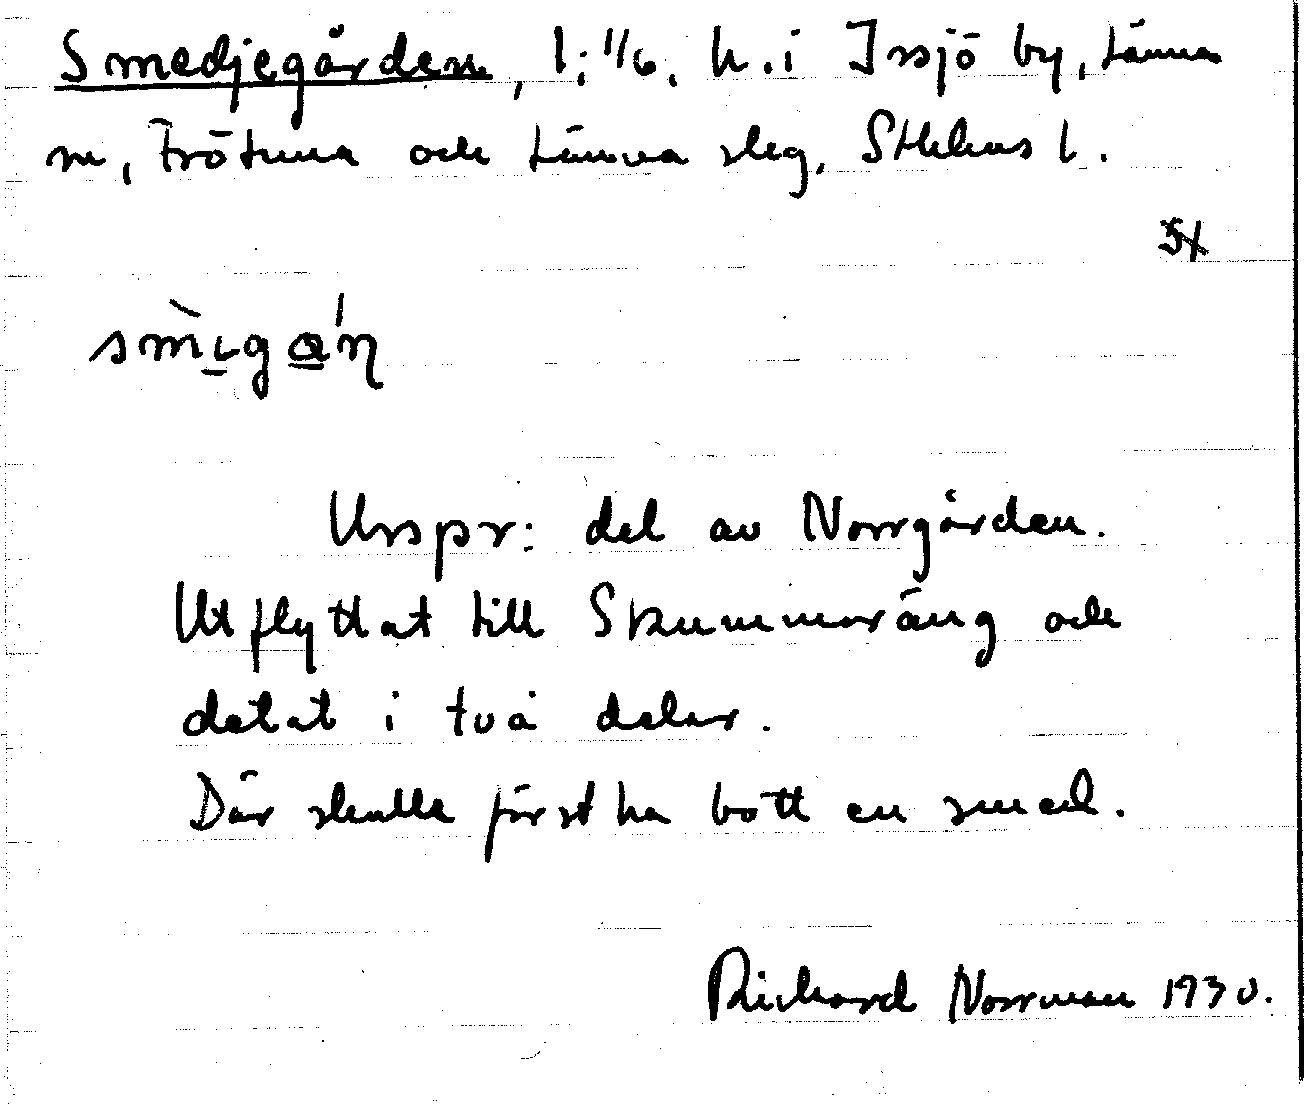 Smedjegården, 1:1/6. h. i Issjö by, Länna
sn, Frötuna och Länna slg, Sthlms l.
smìgạ'ṇ
Urspr: del av Norrgården.
Utflyttat till Skummoräng och
delat i två delar.
Där skulle först ha bott en smed.
Richard Norrman 1930.